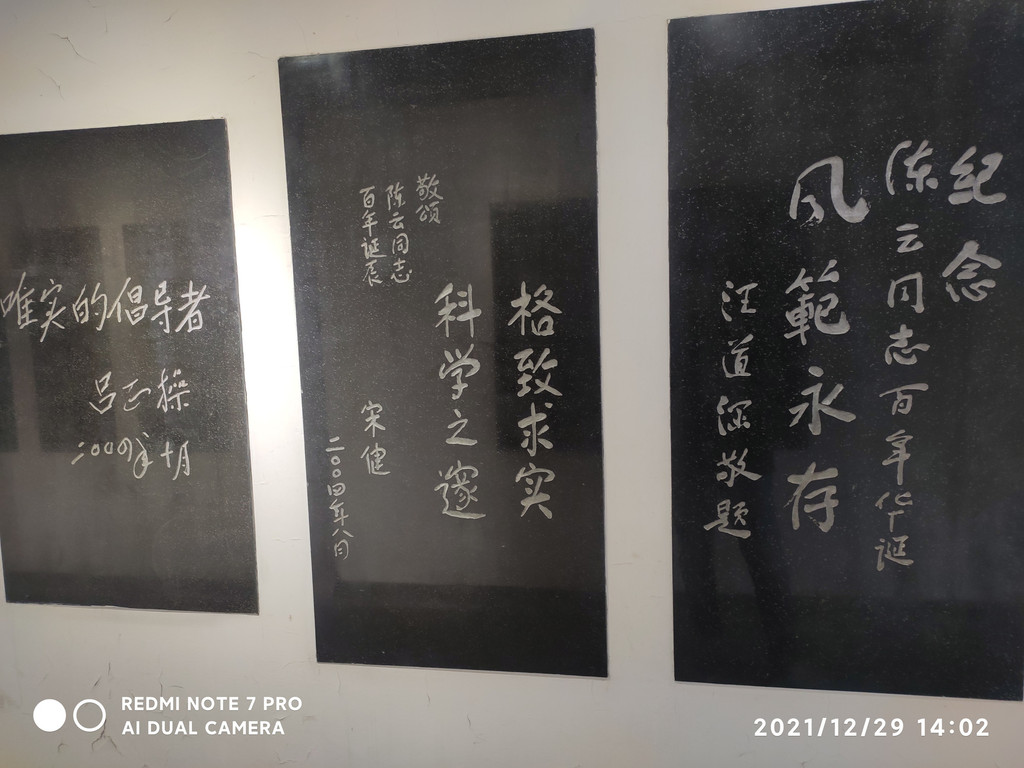 纪念
陈云同志百年华诞
风範永存
汪道涵敬题
格致求实
科学之邃
敬颂
陈云同志
百年诞辰
宋健
二〇〇四年八月
唯实的倡导者
吕正操
二00四年十月
REDMI NOTE 7 PRO
AI DUAL CAMERA
2021/12/29 14:02